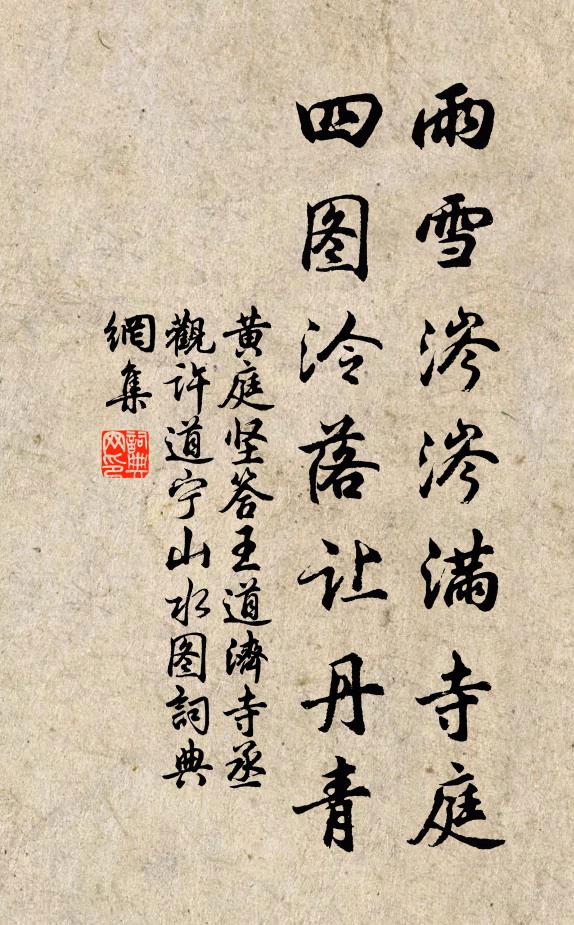 雨雪涔涔满寺庭
四图冷落让丹青
黄庭坚答王道濟寺丞
觀许道宁山水图詞典
網集
詞典网印